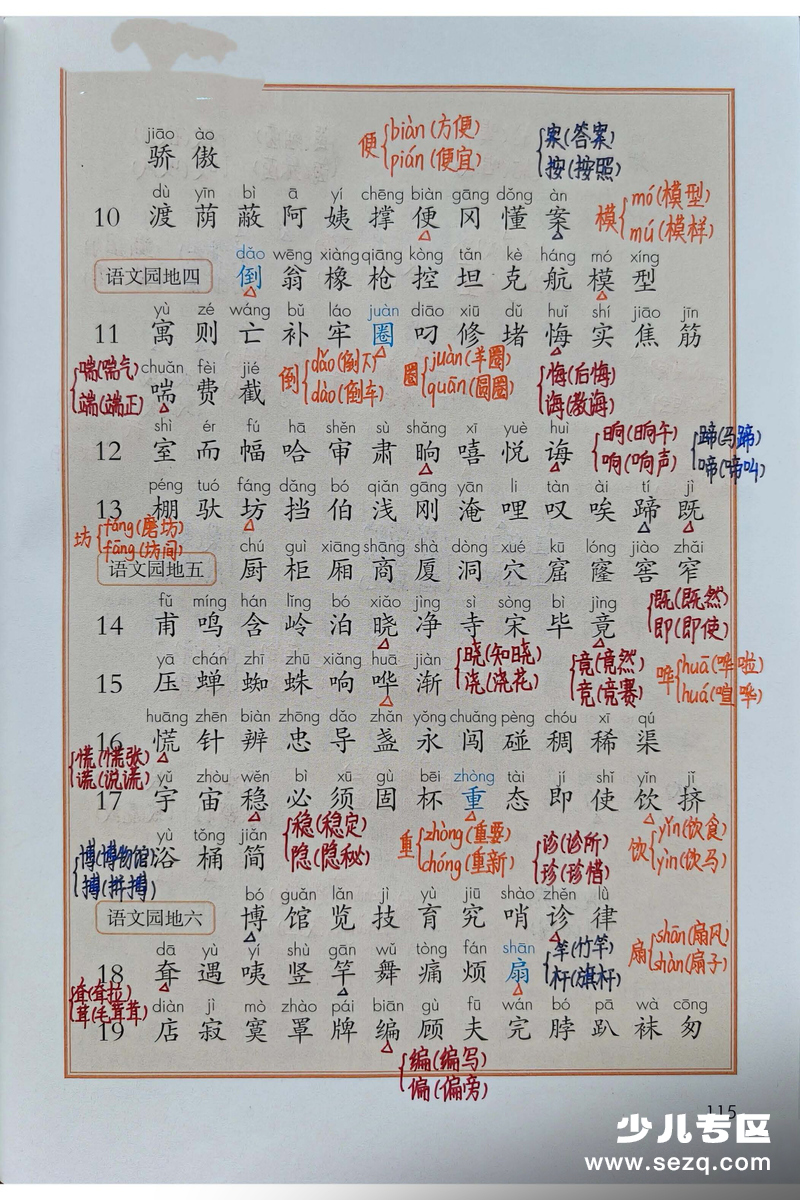 jiāo ào
骄 傲
便 biàn(方便)
pián(便宜)
案(答案)
按(按照)
dù yīn bì ā yí chēng biàn gāng dǒng àn
10 渡 荫 蔽 阿 姨 撑 便 冈 懂 案
模 mó(模型)
mú(模样)
dǎo wēng xiàng qiāng kòng tǎn kè háng mó xíng
语文园地四 倒 翁 橡 枪 控 坦 克 航 模 型
yù zé wáng bǔ láo juàn diāo xiū dǔ huǐ shí jiāo jīn
11 寓 则 亡 补 牢 圈 叼 修 堵 悔 实 焦 筋
chuǎn fèi jié
喘 费 截
喘(喘气)
端(端正)
倒 dǎo(倒下)
dào(倒车)
圈 juàn(羊圈)
quān(圆圈)
悔(后悔)
诲(教诲)
shì ér fú hā shěn sù shǎng xī yuè huì
12 室 而 幅 哈 审 肃 晌 嘻 悦 诲
晌(晌午)
响(响声)
蹄(马蹄)
啼(啼叫)
péng tuó fáng dǎng bó qiǎn gāng yān li tàn ài tí jì
13 棚 驮 坊 挡 伯 浅 刚 淹 哩 叹 唉 蹄 既
坊 fáng(磨坊)
fāng(坊间)
chú guì xiāng shāng shà dòng xué kū lóng jiào zhǎi
语文园地五 厨 柜 厢 商 厦 洞 穴 窟 窿 窖 窄
fǔ míng hán lǐng bó xiǎo jìng sì sòng bì jìng
14 甫 鸣 含 岭 泊 晓 净 寺 宋 毕 竟
既(既然)
即(即使)
yā chán zhī zhū xiǎng huā jiàn
15 压 蝉 蜘 蛛 响 哗 渐
晓(知晓)
浇(浇花)
竟(竟然)
竞(竞赛)
哗 huā(哗啦)
huá(喧哗)
huāng zhēn biàn zhōng dǎo zhǎn yǒng chuǎng pèng chóu xī qú
16 慌 针 辨 忠 导 盏 永 闯 碰 稠 稀 渠
慌(慌张)
谎(说谎)
yǔ zhòu wěn bì xū gù bēi zhòng tài jí shǐ yǐn jǐ
17 宇 宙 稳 必 须 固 杯 重 态 即 使 饮 挤
yù tǒng jiǎn
浴 桶 简
稳(稳定)
隐(隐秘)
重 zhòng(重要)
chóng(重新)
诊(诊所)
珍(珍惜)
饮 yǐn(饮食)
yìn(饮马)
博(博物馆)
搏(拼搏)
bó guǎn lǎn jì yù jiū shào zhěn lǜ
语文园地六 博 馆 览 技 育 究 哨 诊 律
dā yù yí shù gān wǔ tòng fán shān
18 耷 遇 咦 竖 竿 舞 痛 烦 扇
竿(竹竿)
杆(旗杆)
扇 shān(扇风)
shàn(扇子)
耷(耷拉)
茸(毛茸茸)
diàn jì mò zhào pái biān gù fū wán bó pā wà cōng
19 店 寂 寞 罩 牌 编 顾 夫 完 脖 趴 袜 匆
编(编写)
偏(偏旁)
115
少儿专区
www.sezq.com